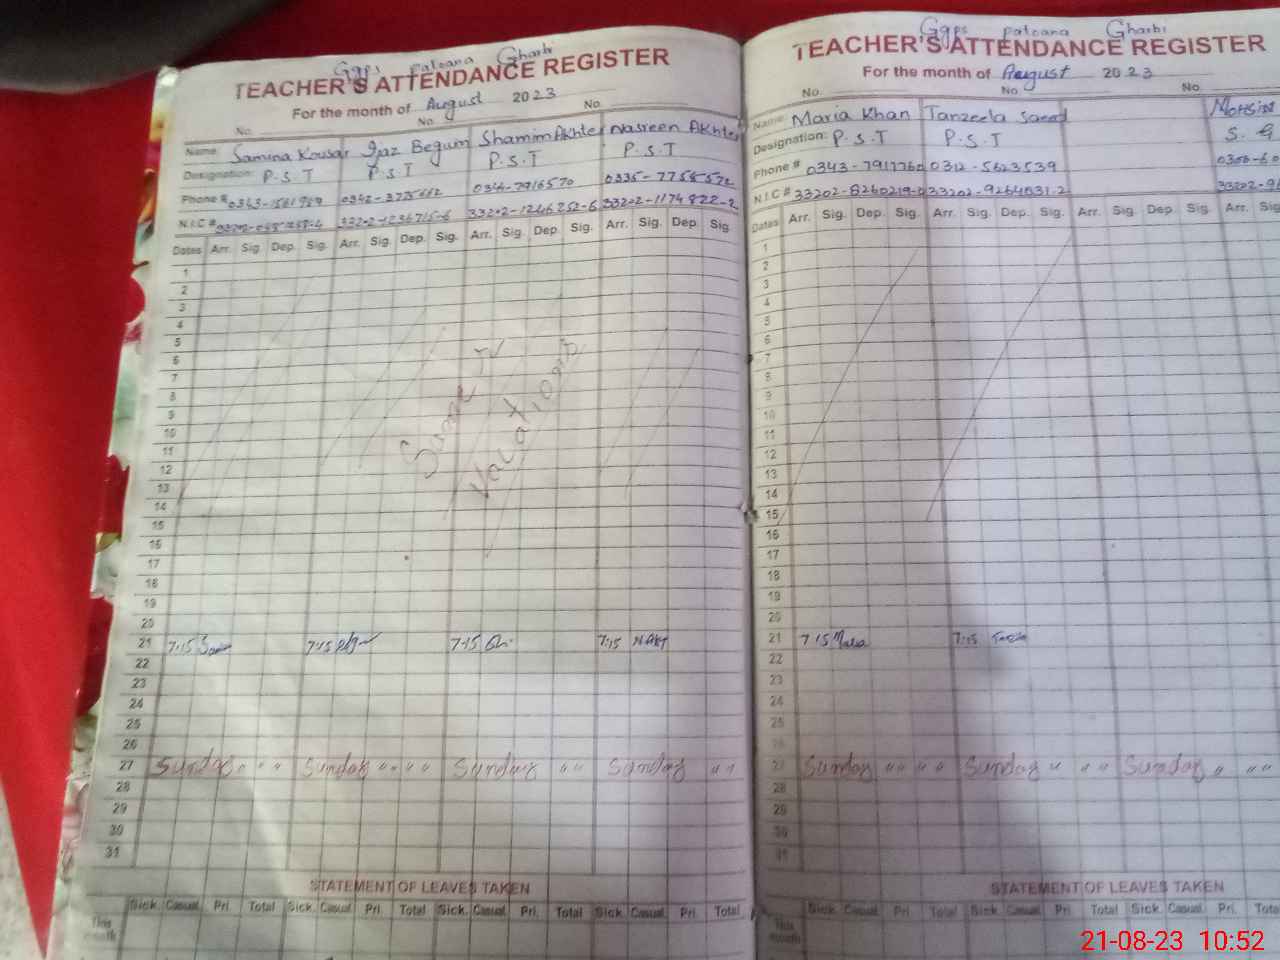 Ggps patoana Gharbi
TEACHER'S ATTENDANCE REGISTER
For the month of August 2023
No. No. No.
Name: Samina Kousar Ijaz Begum Shamim Akhter Nasreen Akhter
Designation: P.S.T P.S.T P.S.T P.S.T
Phone # 0343-1561989 0342-3775662 0346-7916570 0335-7758572
N.I.C # 33202-1236715-6 33202-1246752-6 33202-1174822-2
Dates Arr. Sig. Dep. Sig. Arr. Sig. Dep. Sig. Arr. Sig. Dep. Sig. Arr. Sig. Dep. Sig.
1
2
3
4
5
6
7
8
9
10
11
12
13
14
15
16
17
18
19
20
Summer
Vacations
21 7:15 7:15 7:15 7:15 NAKT
22
23
24
25
26
27 Sunday " " " Sunday " " " " Sunday " " Sunday " "
28
29
30
31
STATEMENT OF LEAVES TAKEN
Sick. Casual. Pri. Total Sick. Casual. Pri. Total Sick. Casual. Pri. Total Sick. Casual. Pri. Total
This month
Ggps patoana Gharbi
TEACHER'S ATTENDANCE REGISTER
For the month of August 2023
No. No. No.
Name: Maria Khan Tanzeela Saeed Mohsin
Designation: P.S.T P.S.T S.
Phone # 0343-7911760 0312-5623539
N.I.C # 33202-8260219-0 33202-9264831-2
Dates Arr. Sig. Dep. Sig. Arr. Sig. Dep. Sig. Arr. Sig. Dep. Sig. Arr. Sig.
1
2
3
4
5
6
7
8
9
10
11
12
13
14
15
16
17
18
19
20
21 7:15 Maria 7:15
22
23
24
25
26
27 Sunday " " " " Sunday " " " Sunday " " "
28
29
30
31
STATEMENT OF LEAVES TAKEN
Sick. Casual. Pri. Total Sick. Casual. Pri. Total Sick. Casual. Pri. Total
This month
21-08-23 10:52